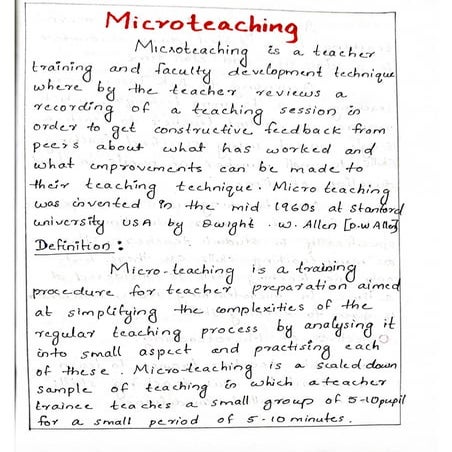 Microteaching
Microteaching is a teacher
training and faculty development technique
where by the teacher reviews a
recording of a teaching session in
order to get constructive feedback from
peers about what has worked and
what emprovements can be made to
their teaching technique. Micro teaching
was invented in the mid 1960s at Stanford
university USA by Dwight . W. Allen [D.W Allen]
Definition :
Micro-teaching is a training
procedure for teacher preparation aimed
at simplifying the complexities of the
regular teaching process by analysing it
into small aspect and practising each
of these . Micro-teaching is a scaled down
sample of teaching in which a teacher
trainee teaches a small group of 5-10 pupil
for a small period of 5-10 minutes.